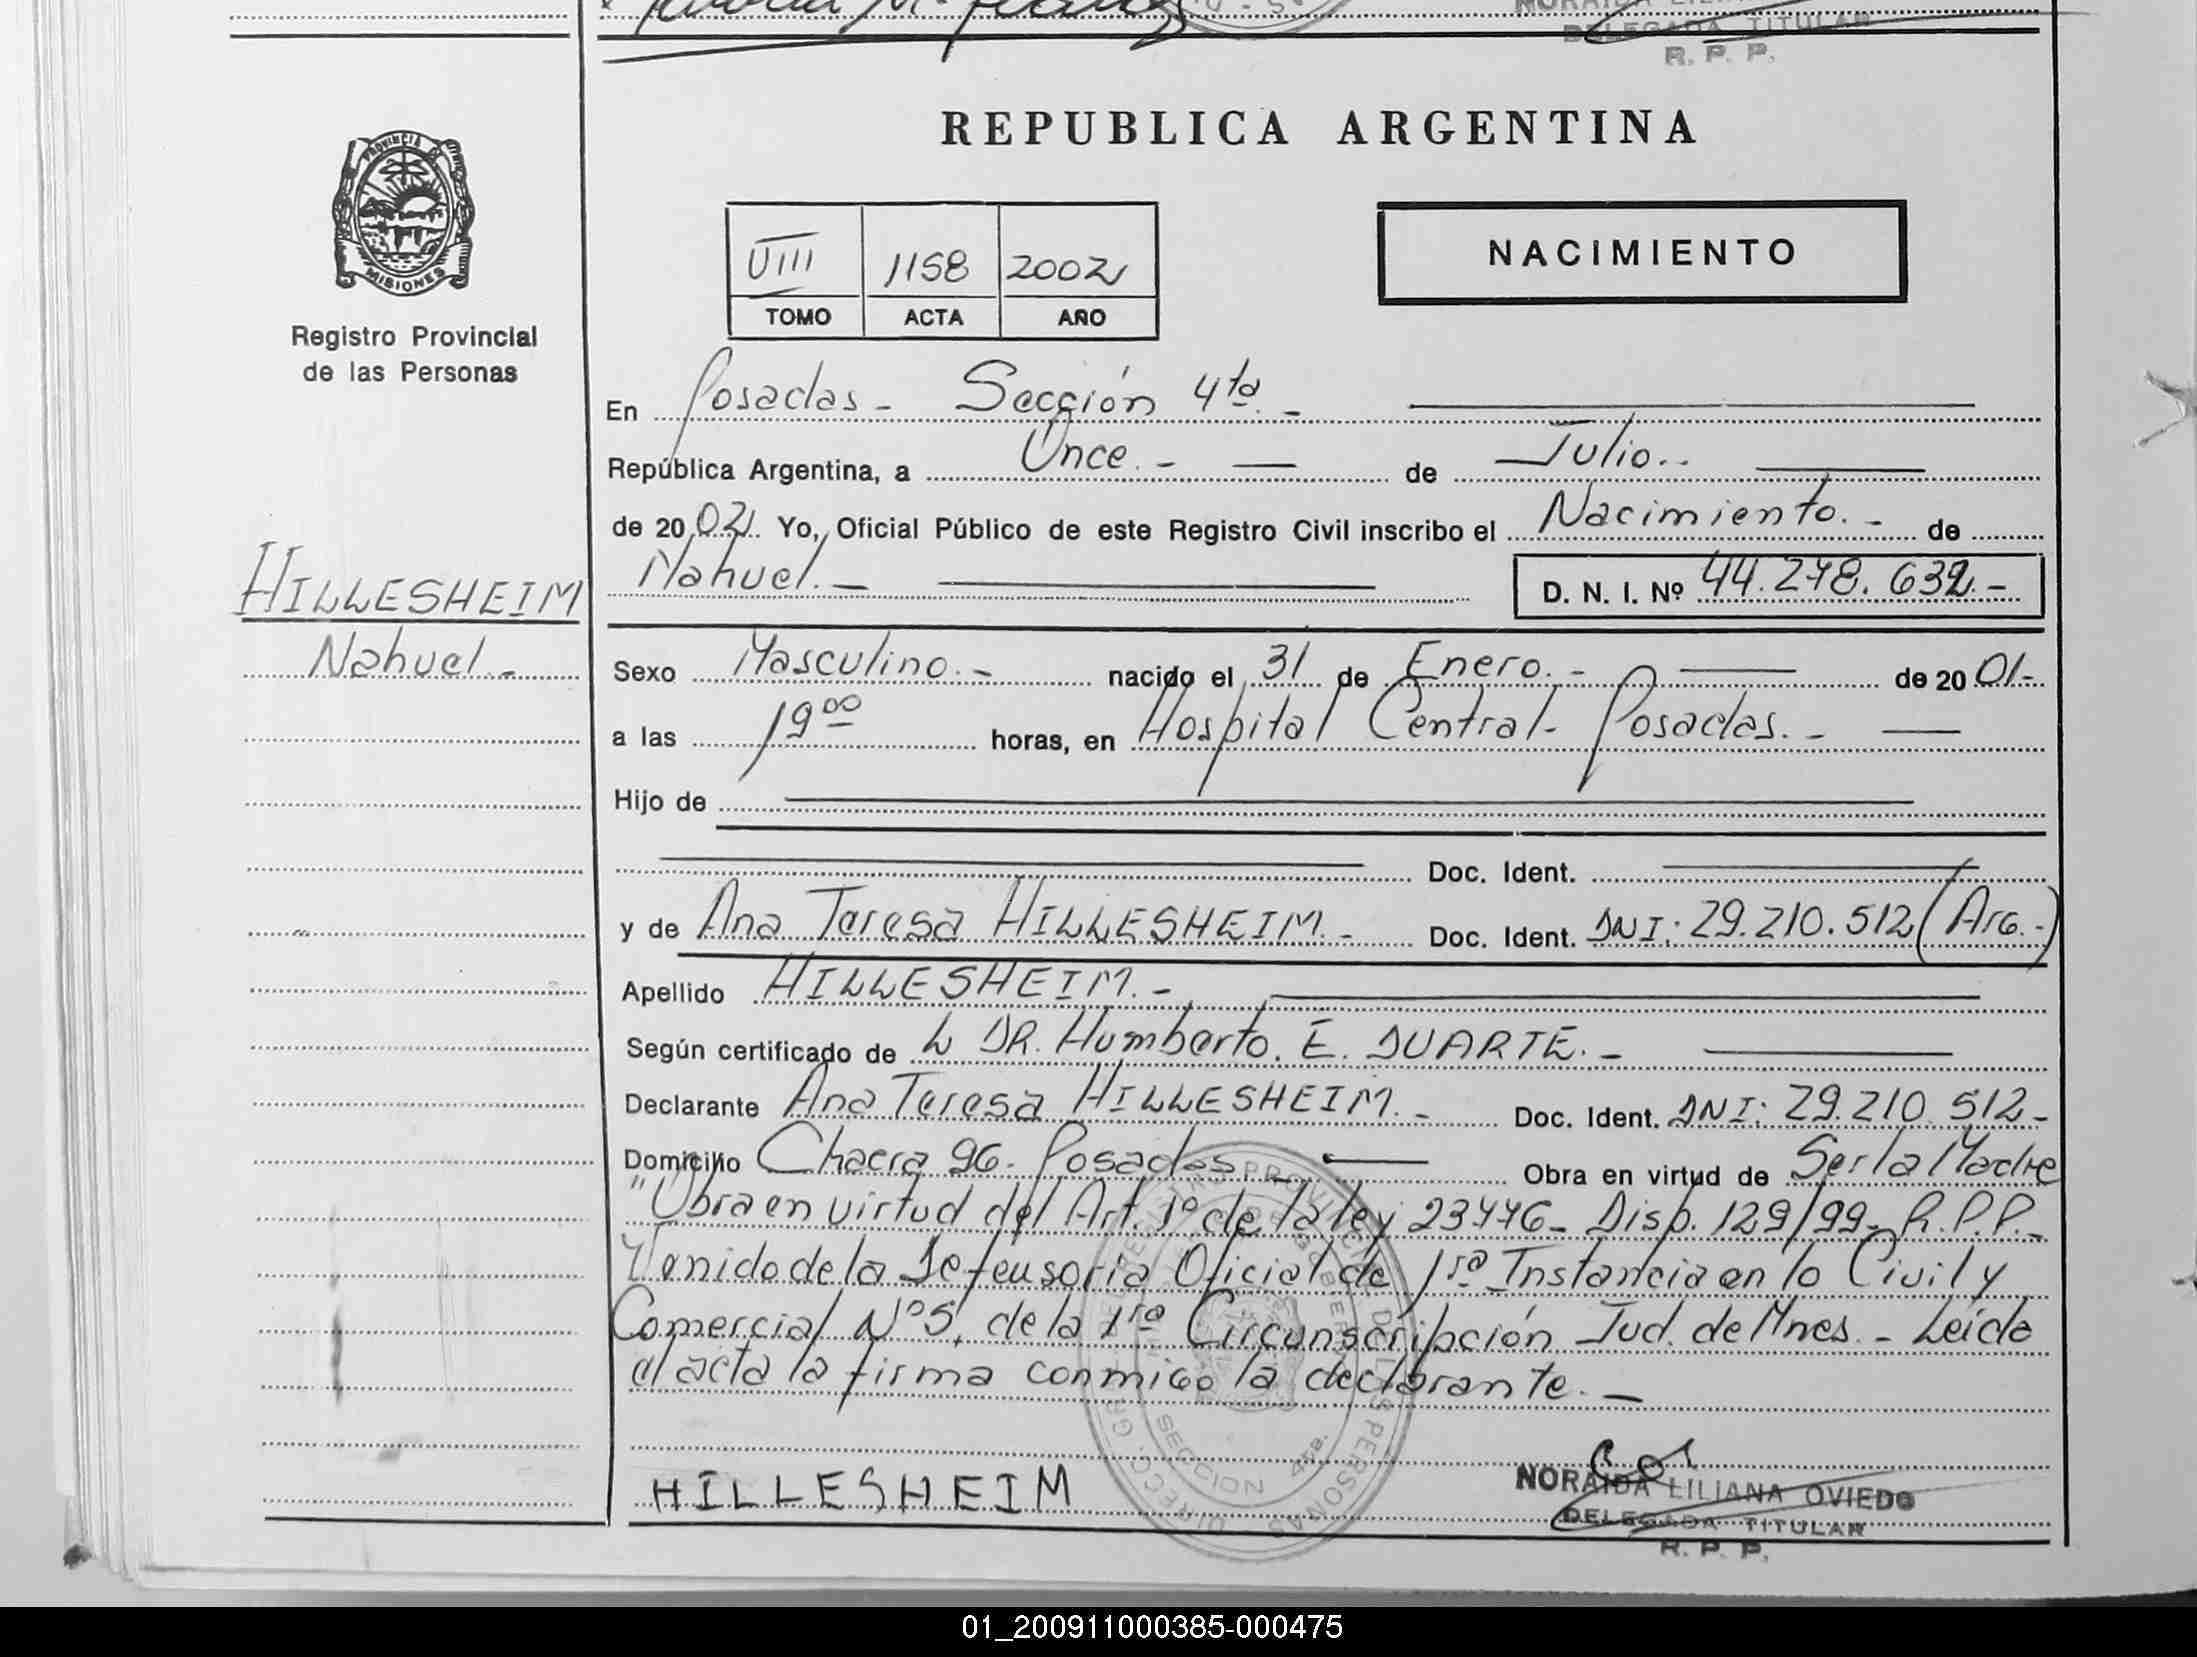 DELEGADA TITULAR
R. P. P.
REPUBLICA ARGENTINA
PROVINCIA DE
MISIONES
Registro Provincial
de las Personas
VIII 1158 2002
TOMO ACTA AÑO
NACIMIENTO
En Posadas - Sección 4ta. -
República Argentina, a Once. - de Julio. -
de 20 02. Yo, Oficial Público de este Registro Civil inscribo el Nacimiento. - de
Nahuel. - D. N. I. Nº 44.278.632. -
HILLESHEIM
Nahuel. -
Sexo Masculino. - nacido el 31 de Enero. - de 20 01-
a las 19 00 horas, en Hospital Central - Posadas. -
Hijo de
Doc. Ident.
y de Ana Teresa HILLESHEIM. - Doc. Ident. DNI: 29.210.512 (Arg. -)
Apellido HILLESHEIM. -
Según certificado de L DR. Humberto. E. DUARTE. -
Declarante Ana Teresa HILLESHEIM. - Doc. Ident. DNI: 29.210.512 -
Domicilio Chacra 96 - Posadas - Obra en virtud de Ser la Madre
"Obra en virtud del Art. 1º de la ley 23776 - Disp. 129/99 - R.P.P. -
Venido de la Defensoria Oficial de 1ra Instancia en lo Civil y
Comercial Nº 5, de la 1ra Circunscripción Jud. de Mnes. - Leída
el acta la firma conmigo la declarante. -
HILLESHEIM
DIRECC. GRAL. DEL REGISTRO PROVINCIAL DE LAS PERSONAS
SECCION 4ta.
NORAIDA LILIANA OVIEDO
DELEGADA TITULAR
R. P. P.
01_200911000385-000475